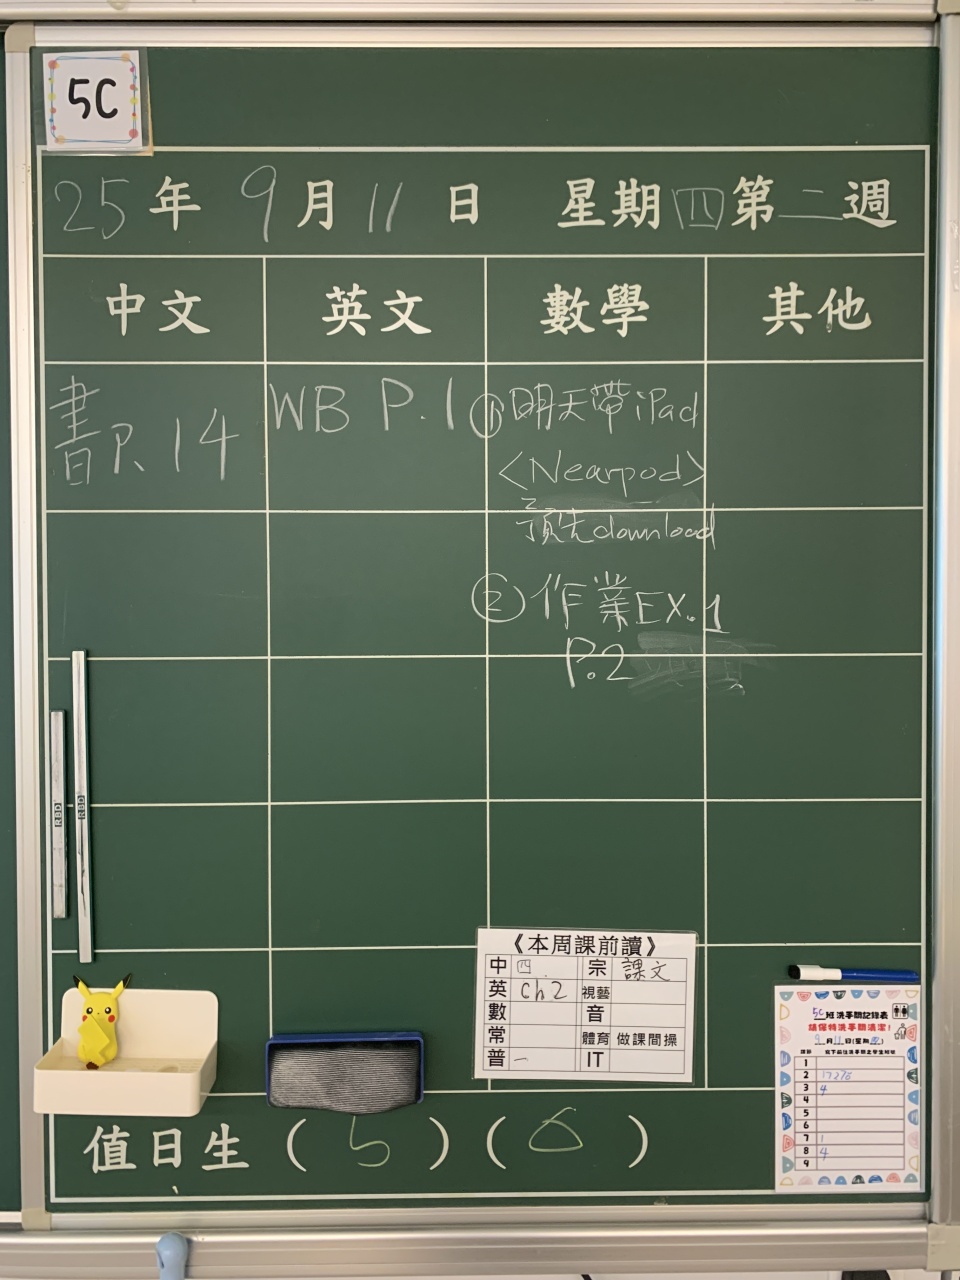 5C
25年 9月 11日 星期四第二週
中文 英文 數學 其他
書P.14
WB P.1
①明天帶iPad
<Nearpod>
預先download
②作業EX.1
P.2
RBD
RBD
《本周課前讀》
中 四 宗 課文
英 ch2 視藝
數 音
常 體育 做課間操
普 一 IT
5C班洗手間記錄表
請保持洗手間清潔!
9月11日(星期四)
1
2
3 4
4
5
6
7 1
8 4
9
值日生 ( 5 ) ( 6 )